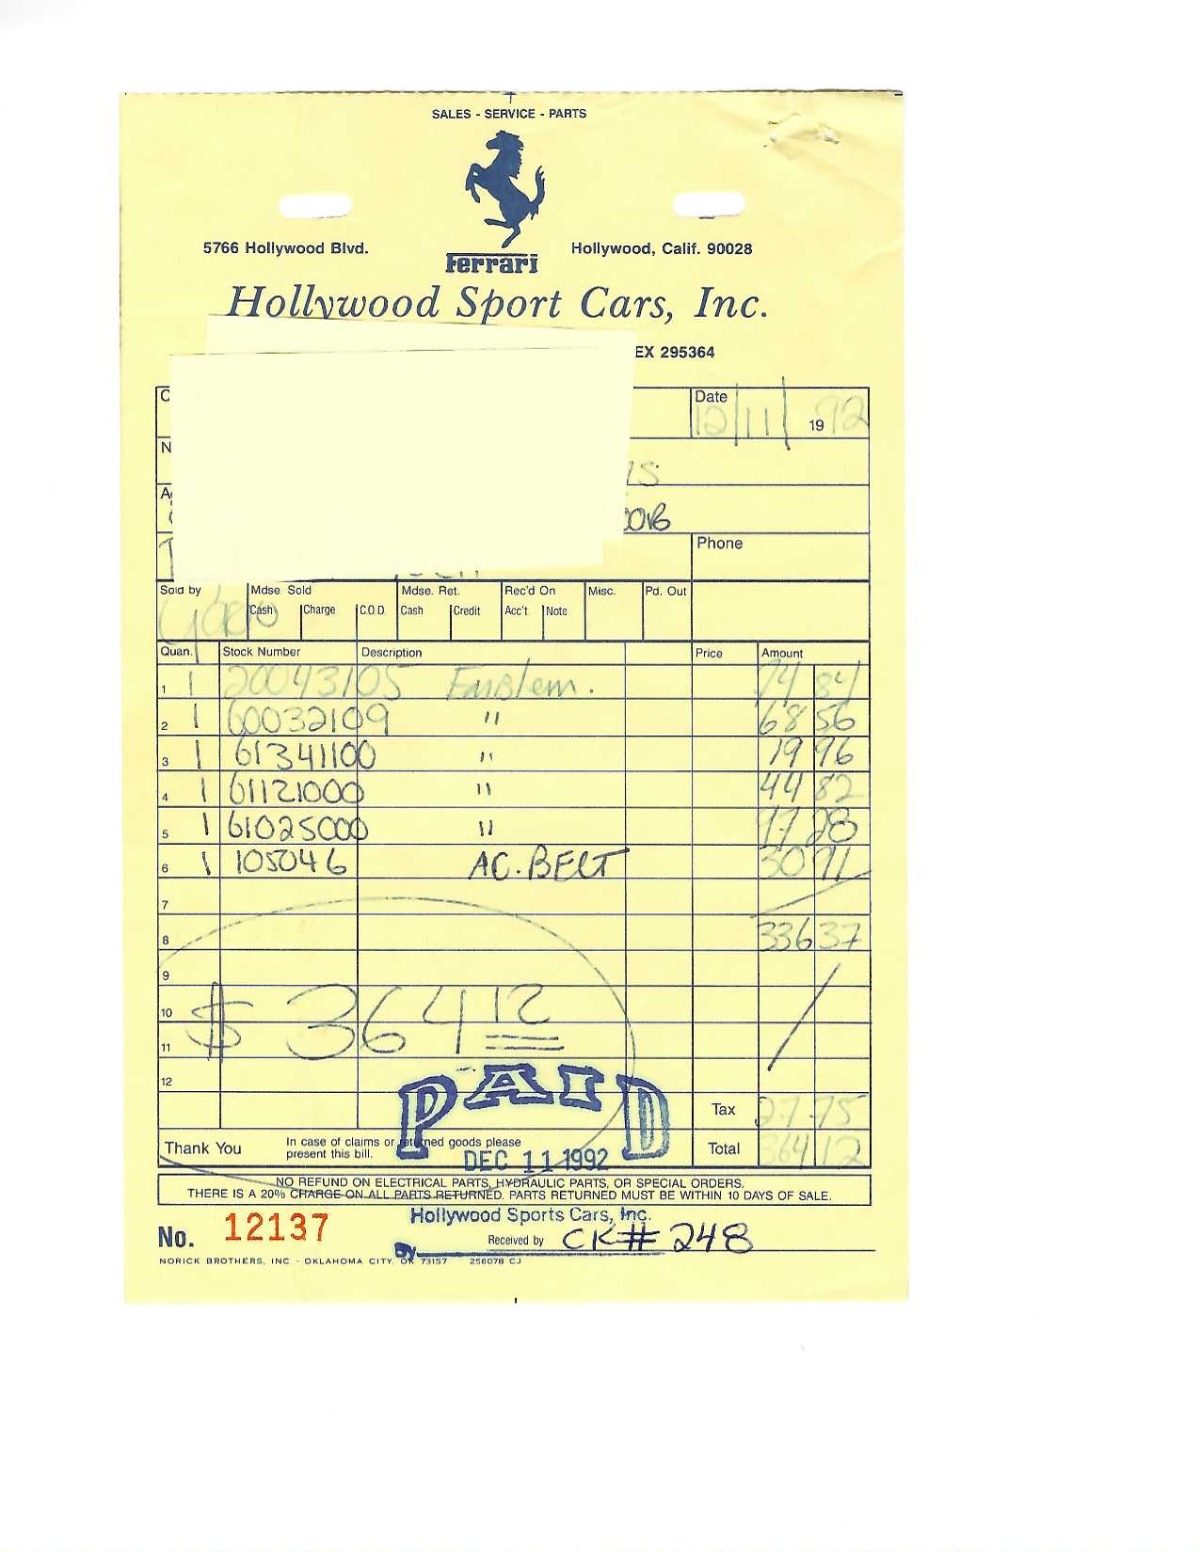 SALES - SERVICE - PARTS
5766 Hollywood Blvd.
Ferrari
Hollywood, Calif. 90028
Hollywood Sport Cars, Inc.
EX 295364
Date 12/11/ 19 92
Phone
Sold by Mdse. Sold Mdse. Ret. Rec'd On Misc. Pd. Out
Cash Charge C.O.D. Cash Credit Acc't Note
Quan. Stock Number Description Price Amount
1 1 20043105 Emblem. 74 84
2 1 60032109 " 68 56
3 1 61341100 " 19 96
4 1 61121000 " 44 82
5 1 61025000 " 97 28
6 1 105046 AC. BELT 30 91
7
8 336 37
9
10 $ 364 12
11
12
PAID
Tax 27 75
Thank You In case of claims or returned goods please Total 364 12
present this bill.
DEC 11 1992
NO REFUND ON ELECTRICAL PARTS, HYDRAULIC PARTS, OR SPECIAL ORDERS.
THERE IS A 20% CHARGE ON ALL PARTS RETURNED. PARTS RETURNED MUST BE WITHIN 10 DAYS OF SALE.
Hollywood Sports Cars, Inc.
No. 12137 Received by CK# 248
By
NORICK BROTHERS, INC - OKLAHOMA CITY, OK 73157 256078 CJ